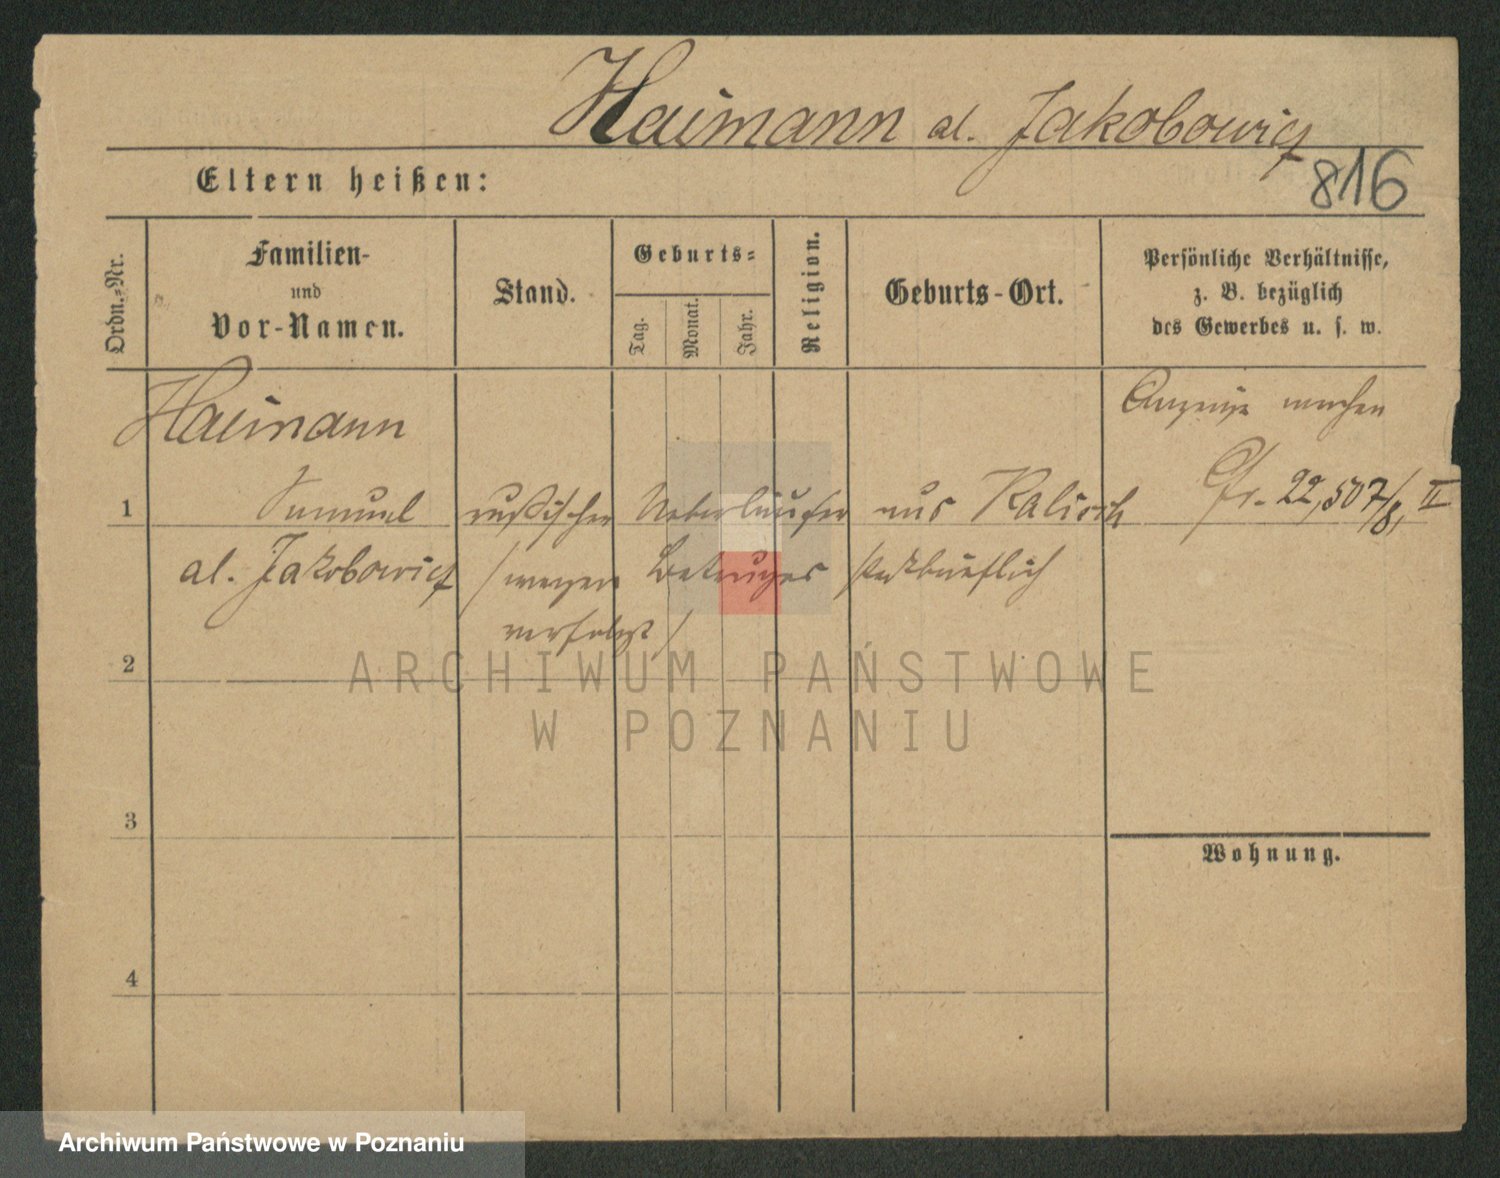 Haimann al. Jakobowicz
Eltern heißen:
816
Ordn.-Nr.
Familien-
und
Vor-Namen.
Stand.
Geburts-
Tag.
Monat.
Jahr.
Religion.
Geburts-Ort.
Persönliche Verhältnisse,
z. B. bezüglich
des Gewerbes u. s. w.
Haimann
Anzeige machen
1
Samuel russischer Ueberläufer aus Kalisch
22,507/81, II
al. Jakobowicz (wegen Betruges steckbrieflich
verfolgt)
2
3
4
Wohnung.
ARCHIWUM PAŃSTWOWE
W POZNANIU
Archiwum Państwowe w Poznaniu